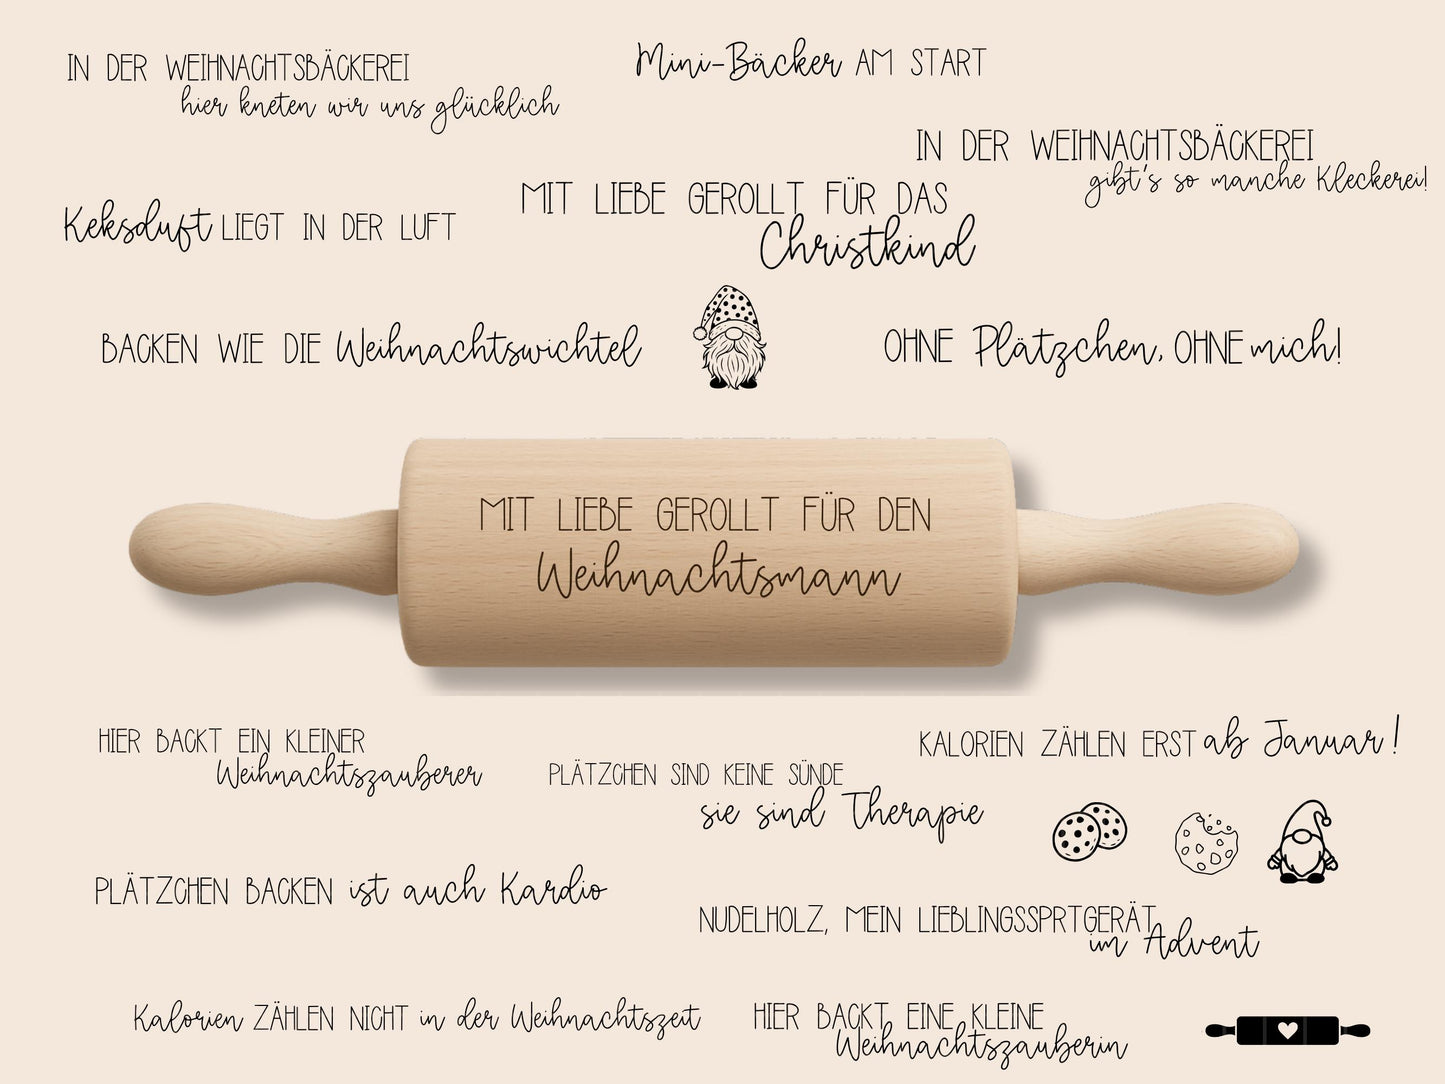 IN DER WEIHNACHTSBÄCKEREI
hier kneten wir uns glücklich
Mini-Bäcker AM START
IN DER WEIHNACHTSBÄCKEREI
gibt's so manche Kleckerei!
MIT LIEBE GEROLLT FÜR DAS
Christkind
Keksduft LIEGT IN DER LUFT
BACKEN WIE DIE Weihnachtswichtel
OHNE Plätzchen, OHNE mich!
MIT LIEBE GEROLLT FÜR DEN
Weihnachtsmann
HIER BACKT EIN KLEINER
Weihnachtszauberer
PLÄTZCHEN SIND KEINE SÜNDE
sie sind Therapie
KALORIEN ZÄHLEN ERST ab Januar!
PLÄTZCHEN BACKEN ist auch Kardio
NUDELHOLZ, MEIN LIEBLINGSSPRTGERÄT
im Advent
Kalorien ZÄHLEN NICHT in der Weihnachtszeit
HIER BACKT EINE KLEINE
Weihnachtszauberin